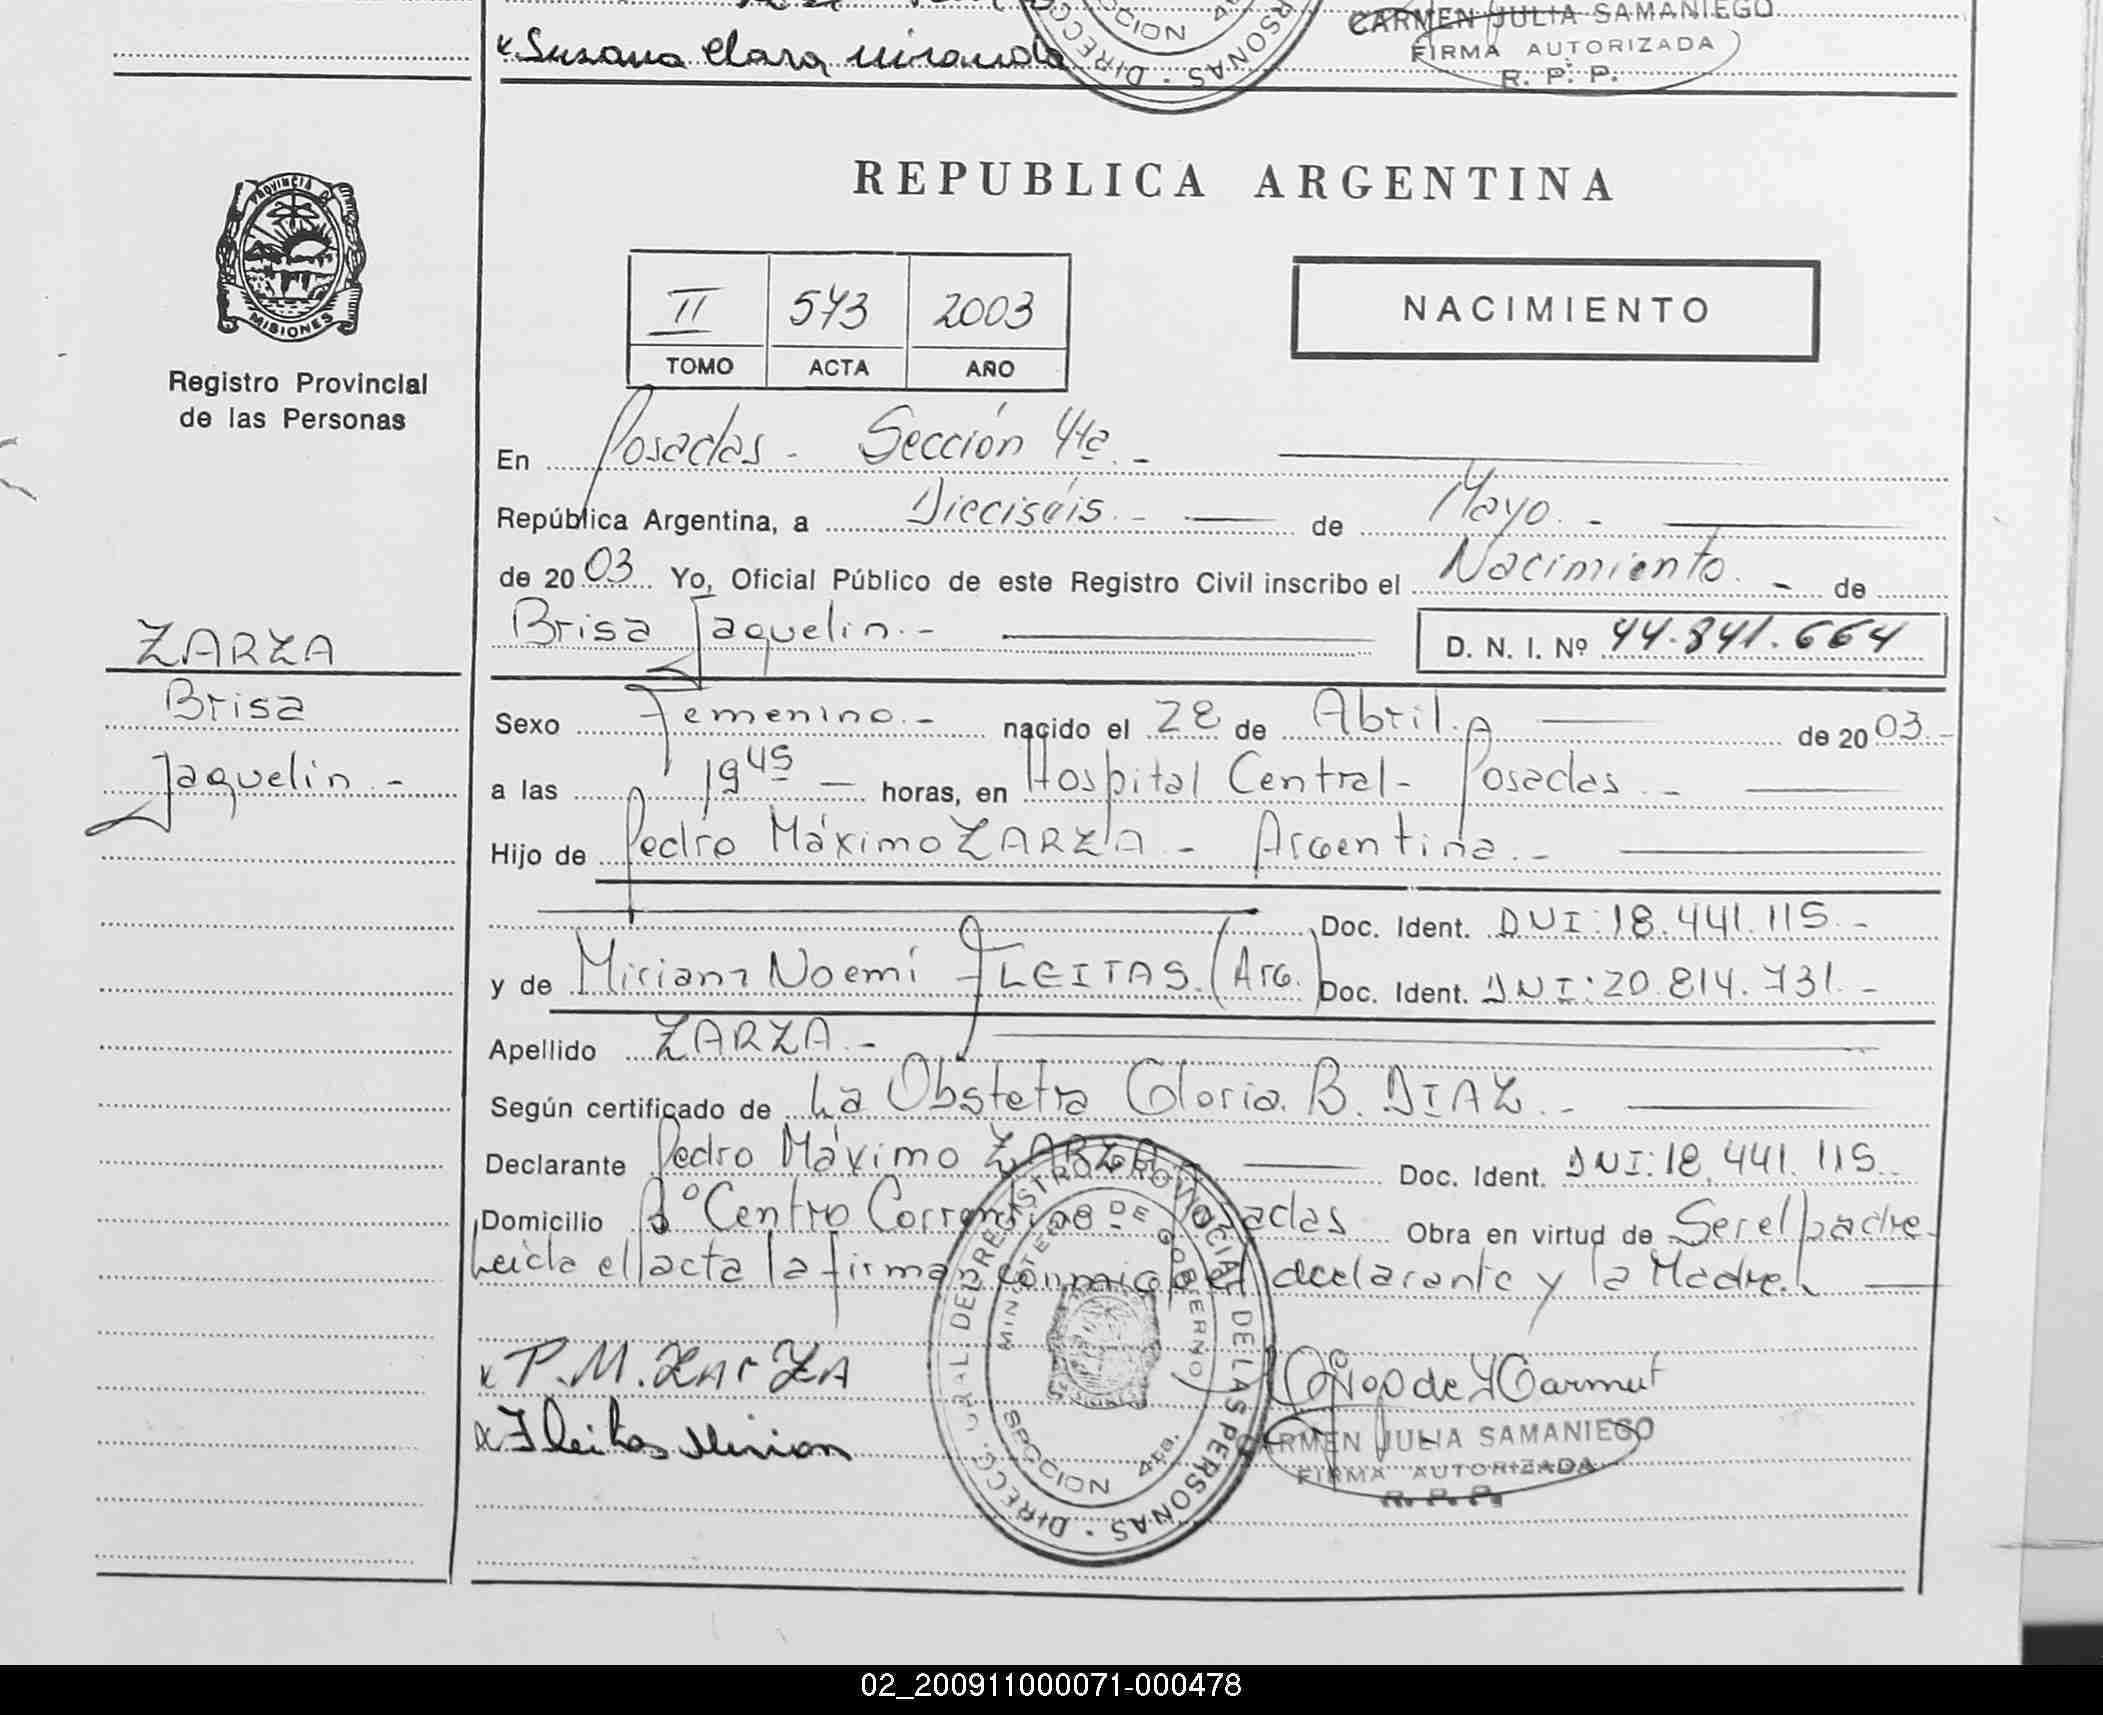 x Susana Clara Miranda
CARMEN JULIA SAMANIEGO
FIRMA AUTORIZADA
R. P. P.
REPUBLICA ARGENTINA
PROVINCIA DE
MISIONES
Registro Provincial
de las Personas
II 573 2003
TOMO ACTA AÑO
NACIMIENTO
En Posadas - Sección 4ta. -
República Argentina, a Dieciséis. - de Mayo. -
de 2003 Yo, Oficial Público de este Registro Civil inscribo el Nacimiento. - de
Brisa Jaquelin. -
D. N. I. Nº 44.841.664
ZARZA
Brisa
Jaquelin. -
Sexo Femenino. - nacido el 28 de Abril. de 2003 -
a las 19 45 - horas, en Hospital Central - Posadas. -
Hijo de Pedro Máximo ZARZA - Argentina. -
Doc. Ident. DNI: 18.441.115. -
y de Miriam Noemí FLEITAS. (Arg.) Doc. Ident. DNI: 20.814.731. -
Apellido ZARZA. -
Según certificado de La Obstetra Gloria. B. DIAZ. -
Declarante Pedro Máximo ZARZA Doc. Ident. DNI: 18.441.115.
Domicilio Bº Centro Correntino - Posadas Obra en virtud de Ser el padre
Leída el acta la firman conmigo el declarante y la Madre.
x P. M. ZArZA
x Fleitas Mirian
DIRECC. GRAL DEL REGISTRO PROVINCIAL DE LAS PERSONAS
MINISTERIO DE GOBIERNO
SECCION 4ta.
CARMEN JULIA SAMANIEGO
FIRMA AUTORIZADA
R. P. P.
02_200911000071-000478